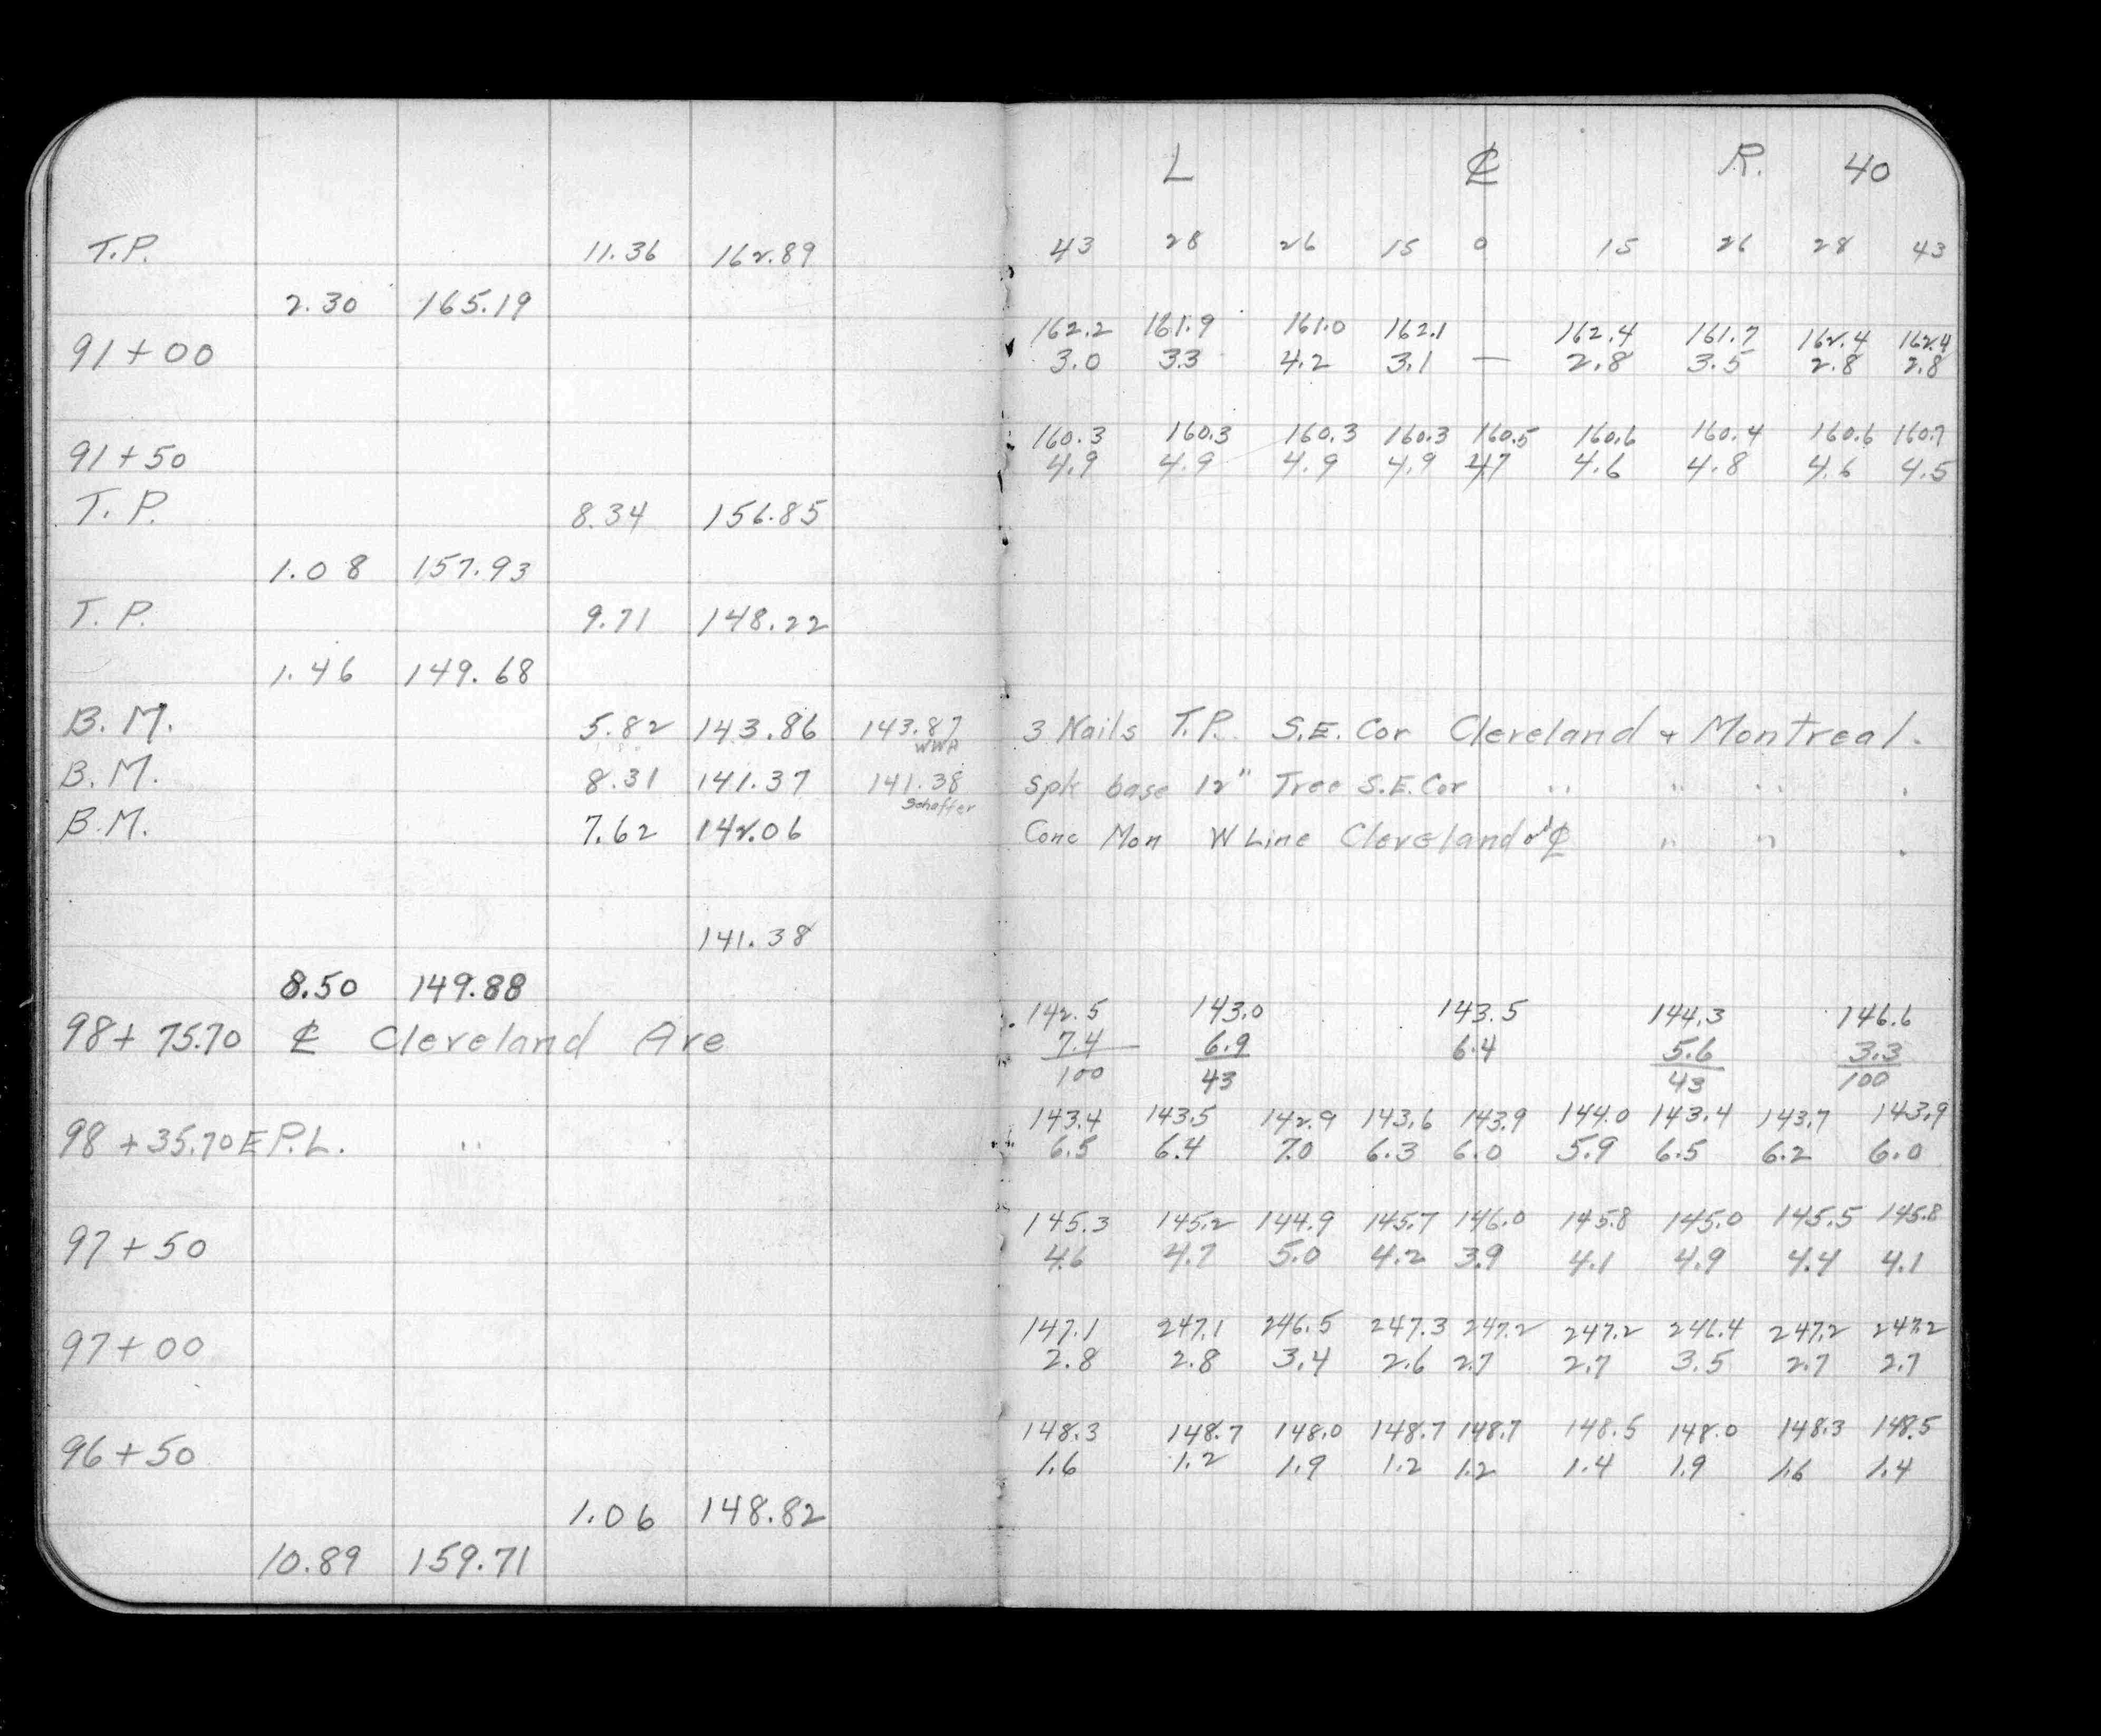 L ℄ R. 40
T.P. 11.36 162.89 43 28 26 15 0 15 26 28 43
2.30 165.19
162.2 161.9 161.0 162.1 162.4 161.7 162.4 162.4
91+00 3.0 3.3 4.2 3.1 — 2.8 3.5 2.8 2.8
160.3 160.3 160.3 160.3 160.5 160.6 160.4 160.6 160.7
91+50 4.9 4.9 4.9 4.9 4.7 4.6 4.8 4.6 4.5
T.P. 8.34 156.85
1.08 157.93
T.P. 9.71 148.22
1.46 149.68
B.M. 5.82 143.86 143.87 3 Nails T.P. S.E. Cor Cleveland + Montreal.
WWA
B.M. 8.31 141.37 141.38 Spk base 12" Tree S.E. Cor " " " .
Schaffer
B.M. 7.62 142.06 Conc Mon W Line Cleveland & ℄ " " .
141.38
8.50 149.88
142.5 143.0 143.5 144.3 146.6
98+75.70 ℄ Cleveland Ave 7.4 6.9 6.4 5.6 3.3
100 43 43 100
143.4 143.5 142.9 143.6 143.9 144.0 143.4 143.7 143.9
98+35.70 E P.L. " 6.5 6.4 7.0 6.3 6.0 5.9 6.5 6.2 6.0
145.3 145.2 144.9 145.7 146.0 145.8 145.0 145.5 145.8
97+50 4.6 4.7 5.0 4.2 3.9 4.1 4.9 4.4 4.1
147.1 247.1 246.5 247.3 247.2 247.2 246.4 247.2 247.2
97+00 2.8 2.8 3.4 2.6 2.7 2.7 3.5 2.7 2.7
148.3 148.7 148.0 148.7 148.7 148.5 148.0 148.3 148.5
96+50 1.6 1.2 1.9 1.2 1.2 1.4 1.9 1.6 1.4
1.06 148.82
10.89 159.71